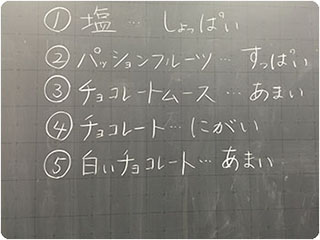 ① 塩 … しょっぱい
② パッションフルーツ … すっぱい
③ チョコレートムース … あまい
④ チョコレート … にがい
⑤ 白いチョコレート … あまい